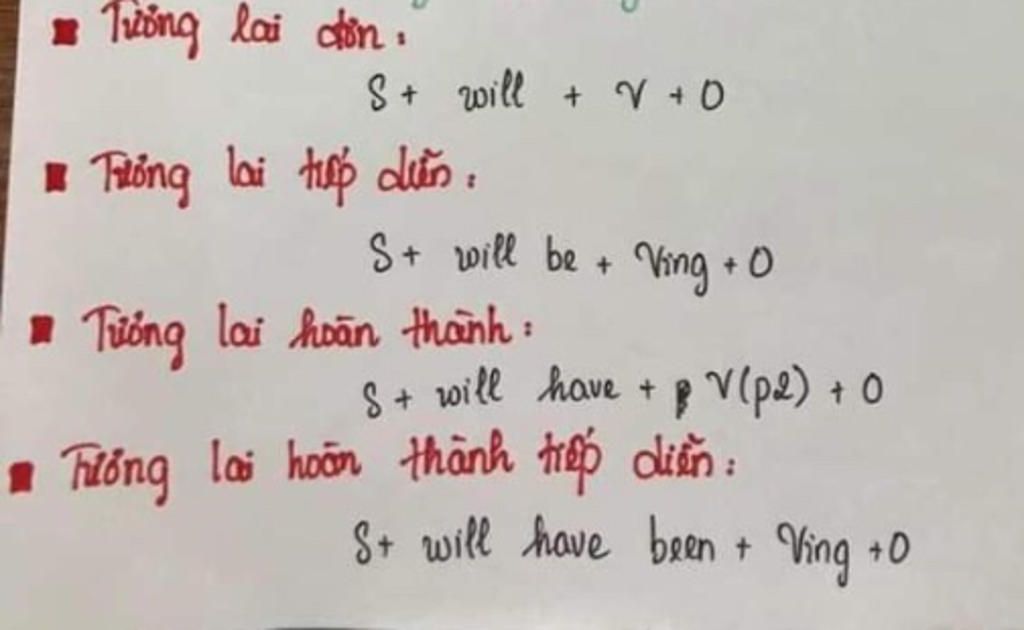 Tương lai đơn:
S + will + V + O
Tương lai tiếp diễn:
S + will be + Ving + O
Tương lai hoàn thành:
S + will have + V(p2) + O
Tương lai hoàn thành tiếp diễn:
S + will have been + Ving + O